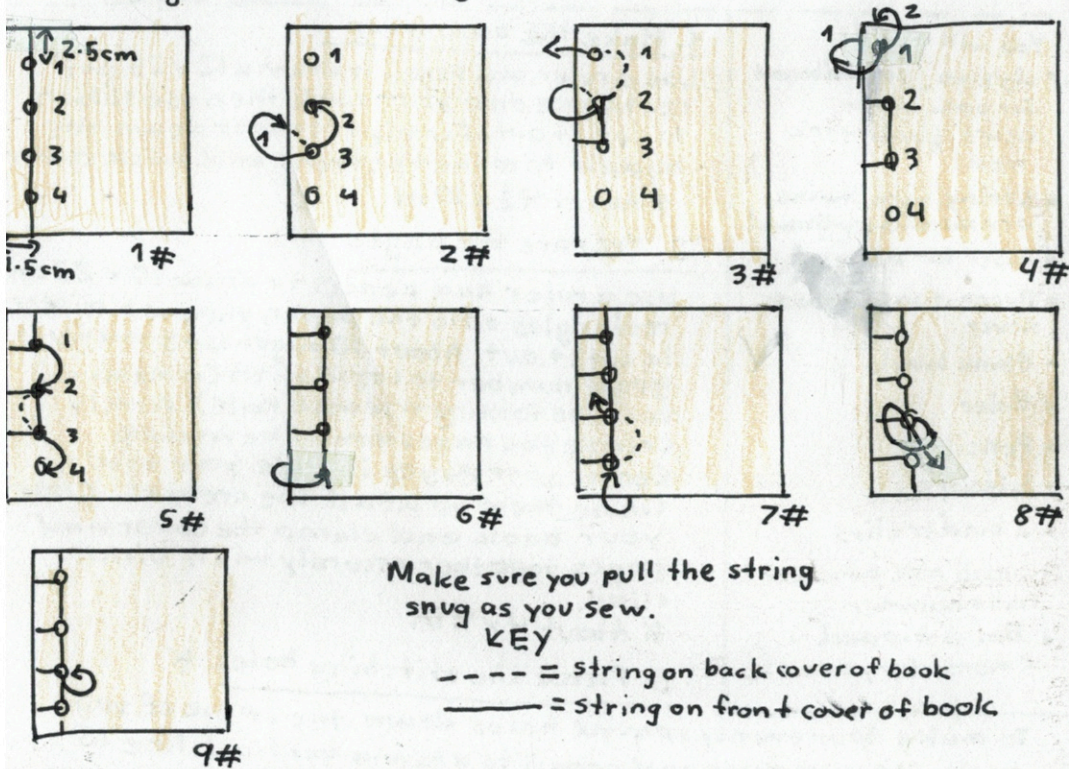 2.5cm
1
2
3
4
.5cm
1#
1
2
1
2
3
4
2#
1
2
3
4
3#
2
1
1
2
3
4
4#
1
2
3
4
5#
6#
7#
8#
9#
Make sure you pull the string
snug as you sew.
KEY
---- = string on back cover of book
—— = string on front cover of book